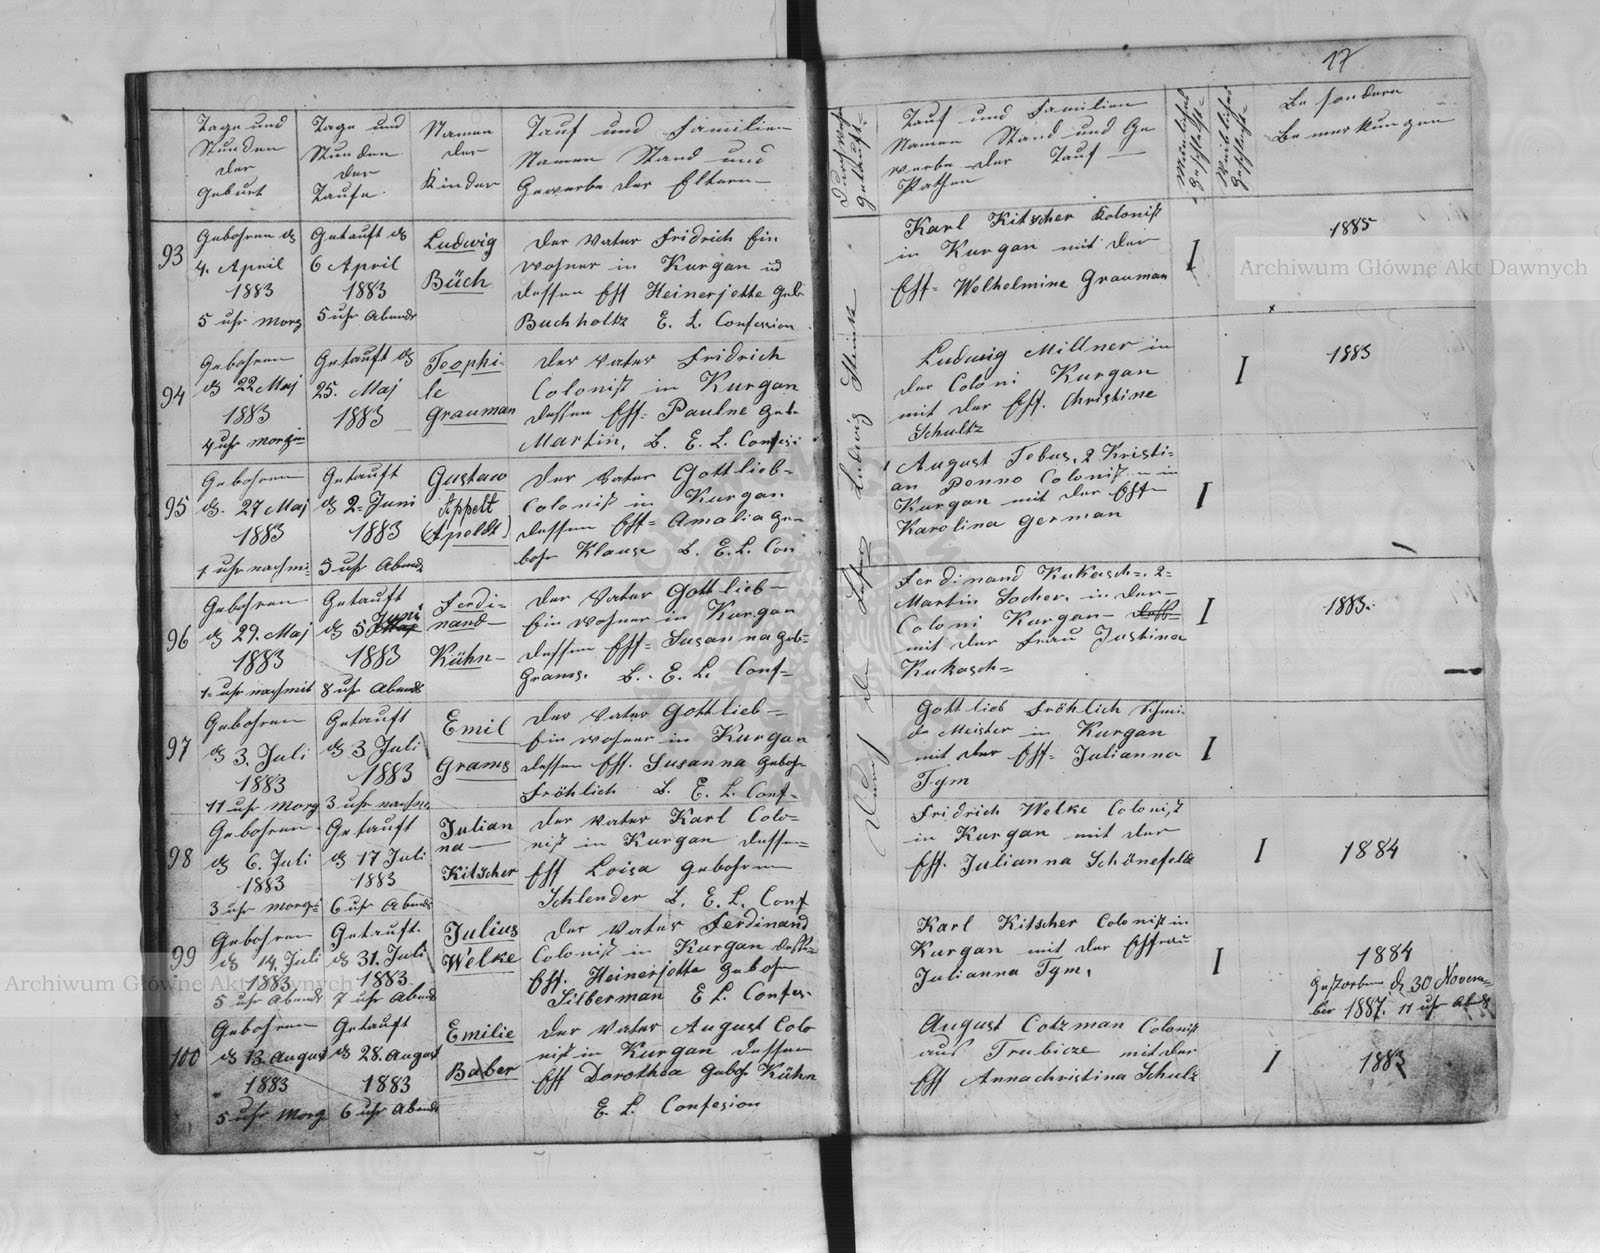 17
Tage und
Stunden
der
Geburt
Tage und
Stunden
der
Taufe
Namen
der
Kinder
Tauf und Familien
Namen Stand und
Gewerbe der Eltern
Durch wen
getauft
Tauf und Familien
Namen Stand und Ge
werbe der Tauf
Pathen
Männliches
Geschlecht
Weibliches
Geschlecht
Besondere
Bemerkungen
93
Gebohren d
4. April
1883
5 uhr Morg
Getauft d
6 April
1883
5 uhr Abends
Ludwig
Büch
Der Vater Fridrich Ein
wohner in Kurgan u
dessen Eff Heinerjette Geb
Buchholtz E. L. Confession
Karl Kitscher Kolonist
in Kurgan mit der
Eff= Welhelmine Grauman
I
1885
94
Gebohren
d 22 Maj
1883
4 uhr morgen
Getauft d
25. Maj
1883
Teophi-
le
Grauman
Der Vater Fridrich
Colonist in Kurgan
dessen Eff= Paulne Geb
Martin, B. E. L. Confesi
Ludwig Millner in
der Coloni Kurgan
mit der Eff. Christine
Schultz
I
1883
95
Gebohren
d. 27 Maj
1883
1 uhr nachmi=
Getauft
d 2= Juni
1883
3 uhr Abends
Gustaw
Appelt
(Apoldt)
Der Vater Gottlieb=
Colonist in Kurgan
dessen Eff= Amalia Ge=
bohr Klause B. E. L. Con
August Tebus, 2 Kristi=
an Ponno Colonisten in
Kurgan mit der Eff=
Karolina German
I
96
Gebohren
d 29. Maj
1883
1= uhr nachmit
Getauft
Juni
d 5 Maj
1883
8 uhr Abends
Ferdi=
nand
Kühn
Der Vater Gottlieb
Einwohner in Kurgan
dessen Eff= Susanna geb=
Grams. B. E. L. Conf=
Ferdinand Kukasch=, 2=
Martin Socher, in der
Coloni Kurgan
mit der Frau Justina
Kukasch=
I
1883.
97
Gebohren
d 3. Juli
1883
11 uhr Morg
Getauft
d 3 Juli
1883
3 uhr nachm
Emil
Grams
Der Vater Gottlieb
Einwohner in Kurgan
dessen Eff. Susanna Geboh
Fröhlich B. E. L. Conf=
Gottlieb Fröhlich Schmi
de Meister in Kurgan
mit der Eff= Julianna
Tym
I
98
Gebohren
d 6. Juli
1883
3 uhr Morge
Getauft
d 17 Juli
1883
6 uhr Abends
Julian
na
Kitscher
Der Vater Karl Colo=
nist in Kurgan dessen=
Eff Loisa Gebohren
Schlender B. E. L. Conf
Fridrich Welke Colonist
in Kurgan mit der
Eff. Julianna Schönefeld
I
1884
99
Gebohren
d 14. Juli
1883
5 uhr Abends
Getauft.
d 31. Juli
1883
7 uhr Abend
Julius
Welke
Der Vater Ferdinand
Colonist in Kurgan dess=
Eff. Heinerjette Geboh
Silberman E L. Confes=
Karl Kitscher Colonist in
Kurgan mit der Effrau
Julianna Tym,
I
1884
Gestorben d 30 Novem=
ber 1887. 11 uhr Abends
100
Gebohren
d 13 August
1883
5 uhr Morg
Getauft
d 28. August
1883
6 uhr Abends
Emilie
Baber
Der Vater August Colo
nist in Kurgan dessen
Eff Dorothea Geboh Kühn
E. L. Confesion
August Cotzman Colonist
aus Trubicze mit der
Eff Annachristina Schulz
I
1883
Ludwig Steinke
Archiwum Główne Akt Dawnych
Archiwum Główne Akt Dawnych